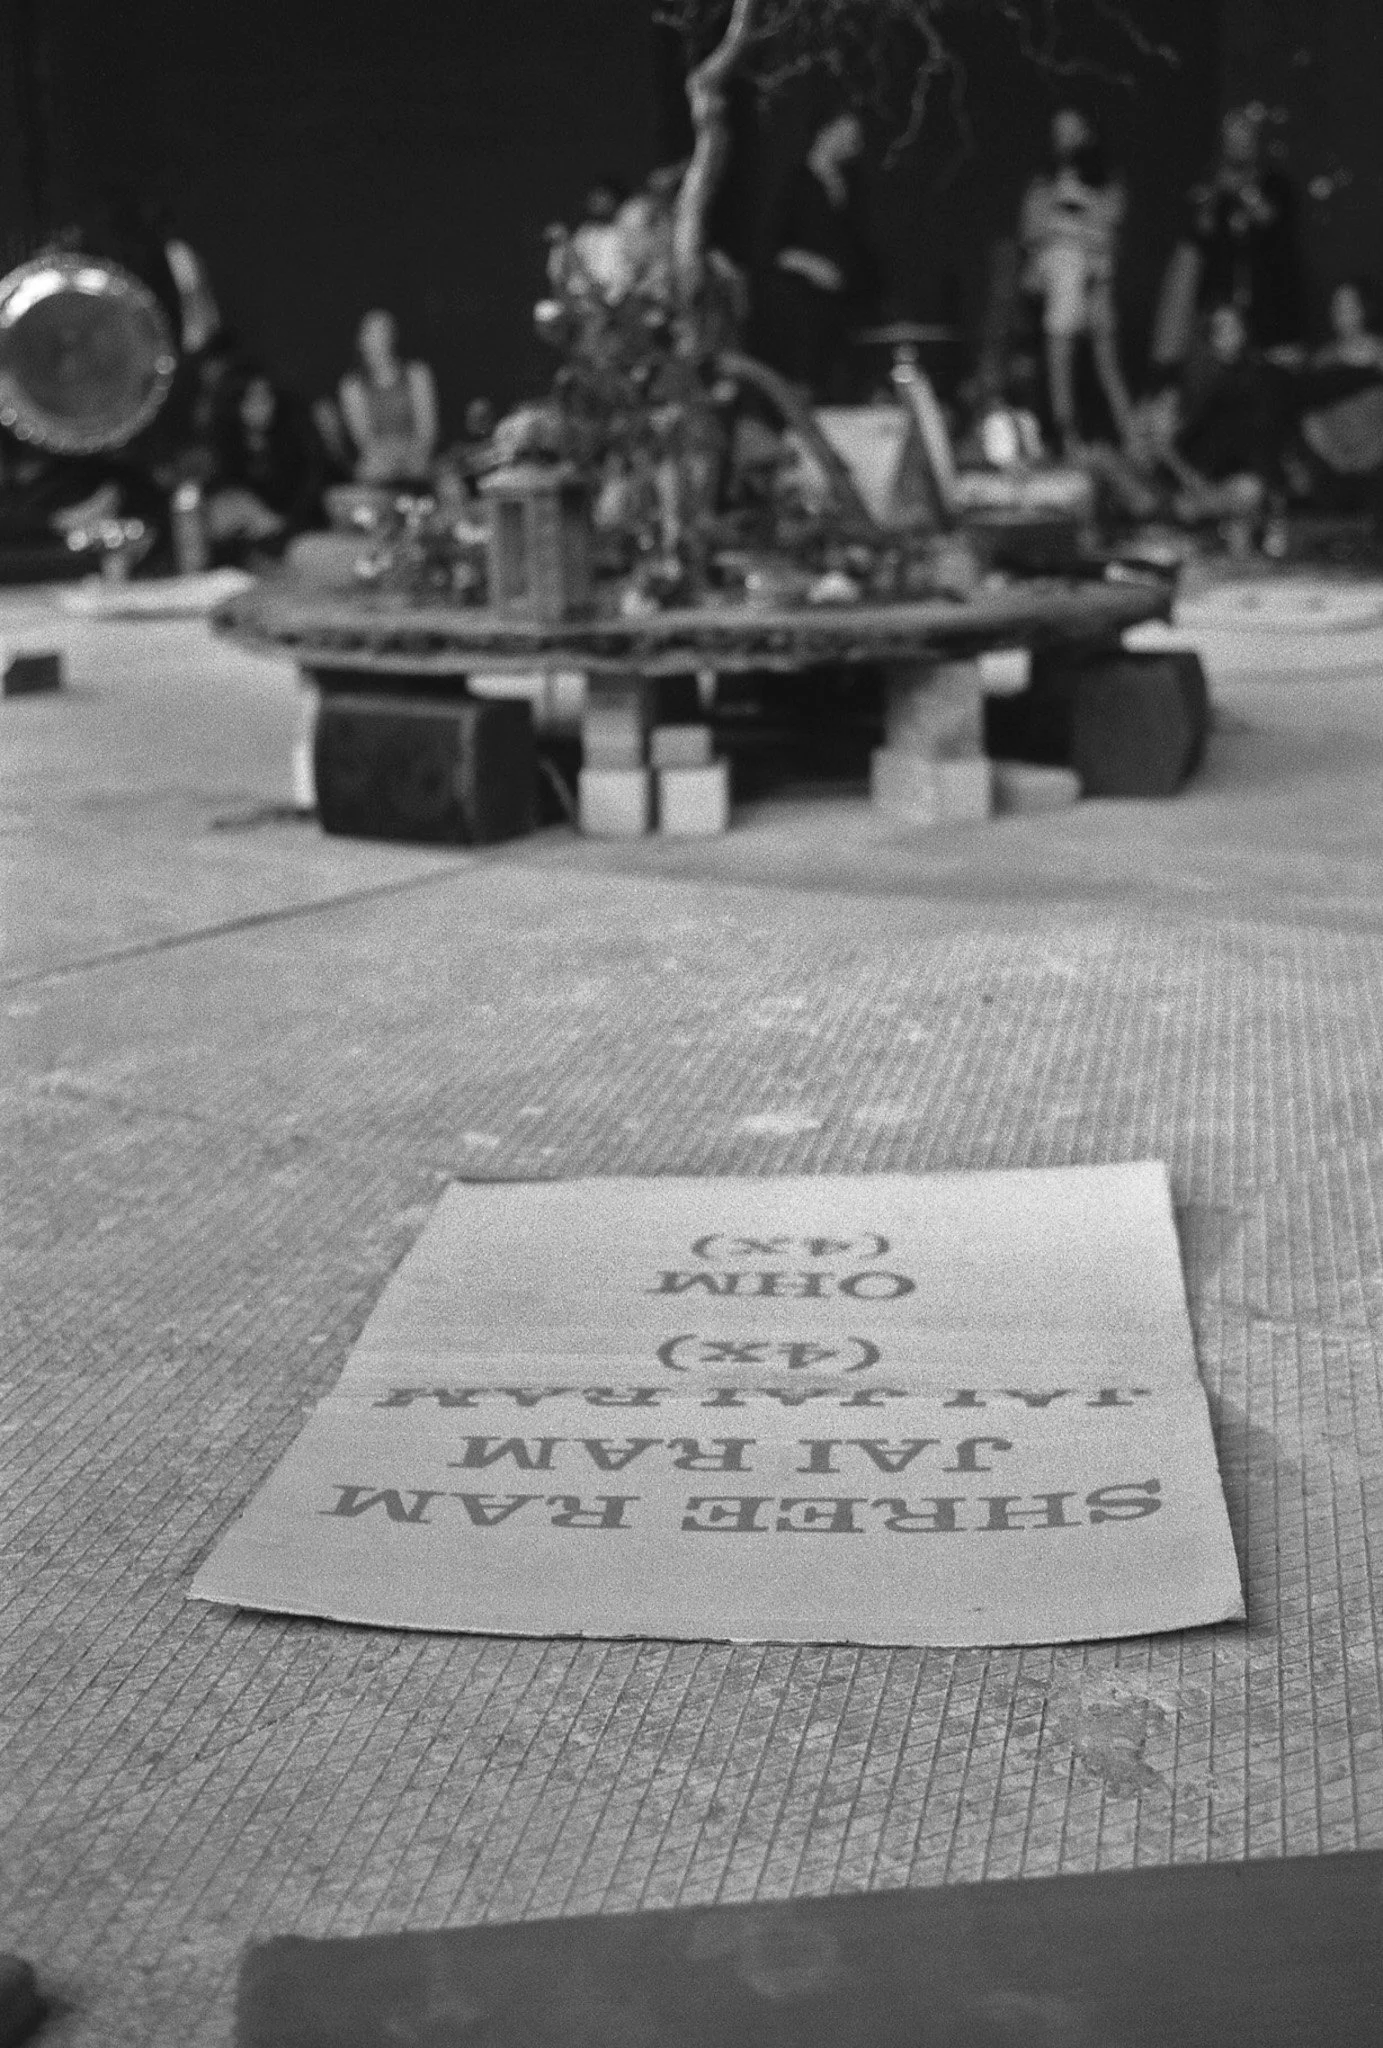 SHREE RAM
JAI RAM
JAI JAI RAM
(4x)
OHM
(4x)